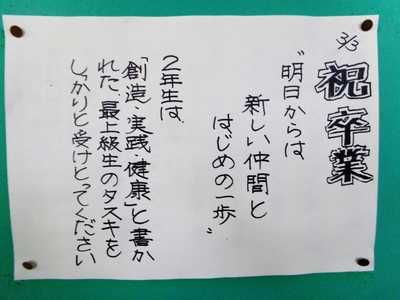 3/3
祝卒業
"明日からは
新しい仲間と
はじめの一歩"
2年生は、
「創造・実践・健康」と書か
れた、最上級生のタスキを
しっかりと受けとってください